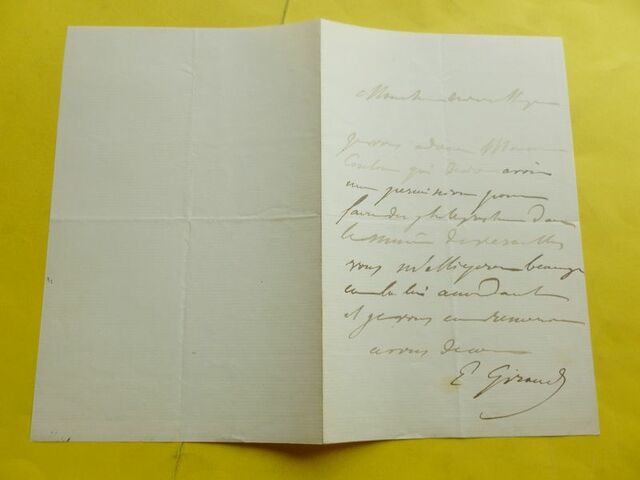 Mon cher
je vous adresse Monsieur
qui désire avoir
une permission pour
faire des photographies dans
le musée de Versailles
vous m'obligerez beaucoup
en la lui accordant
et je vous en remercie
a vous de cœur
E Giraud